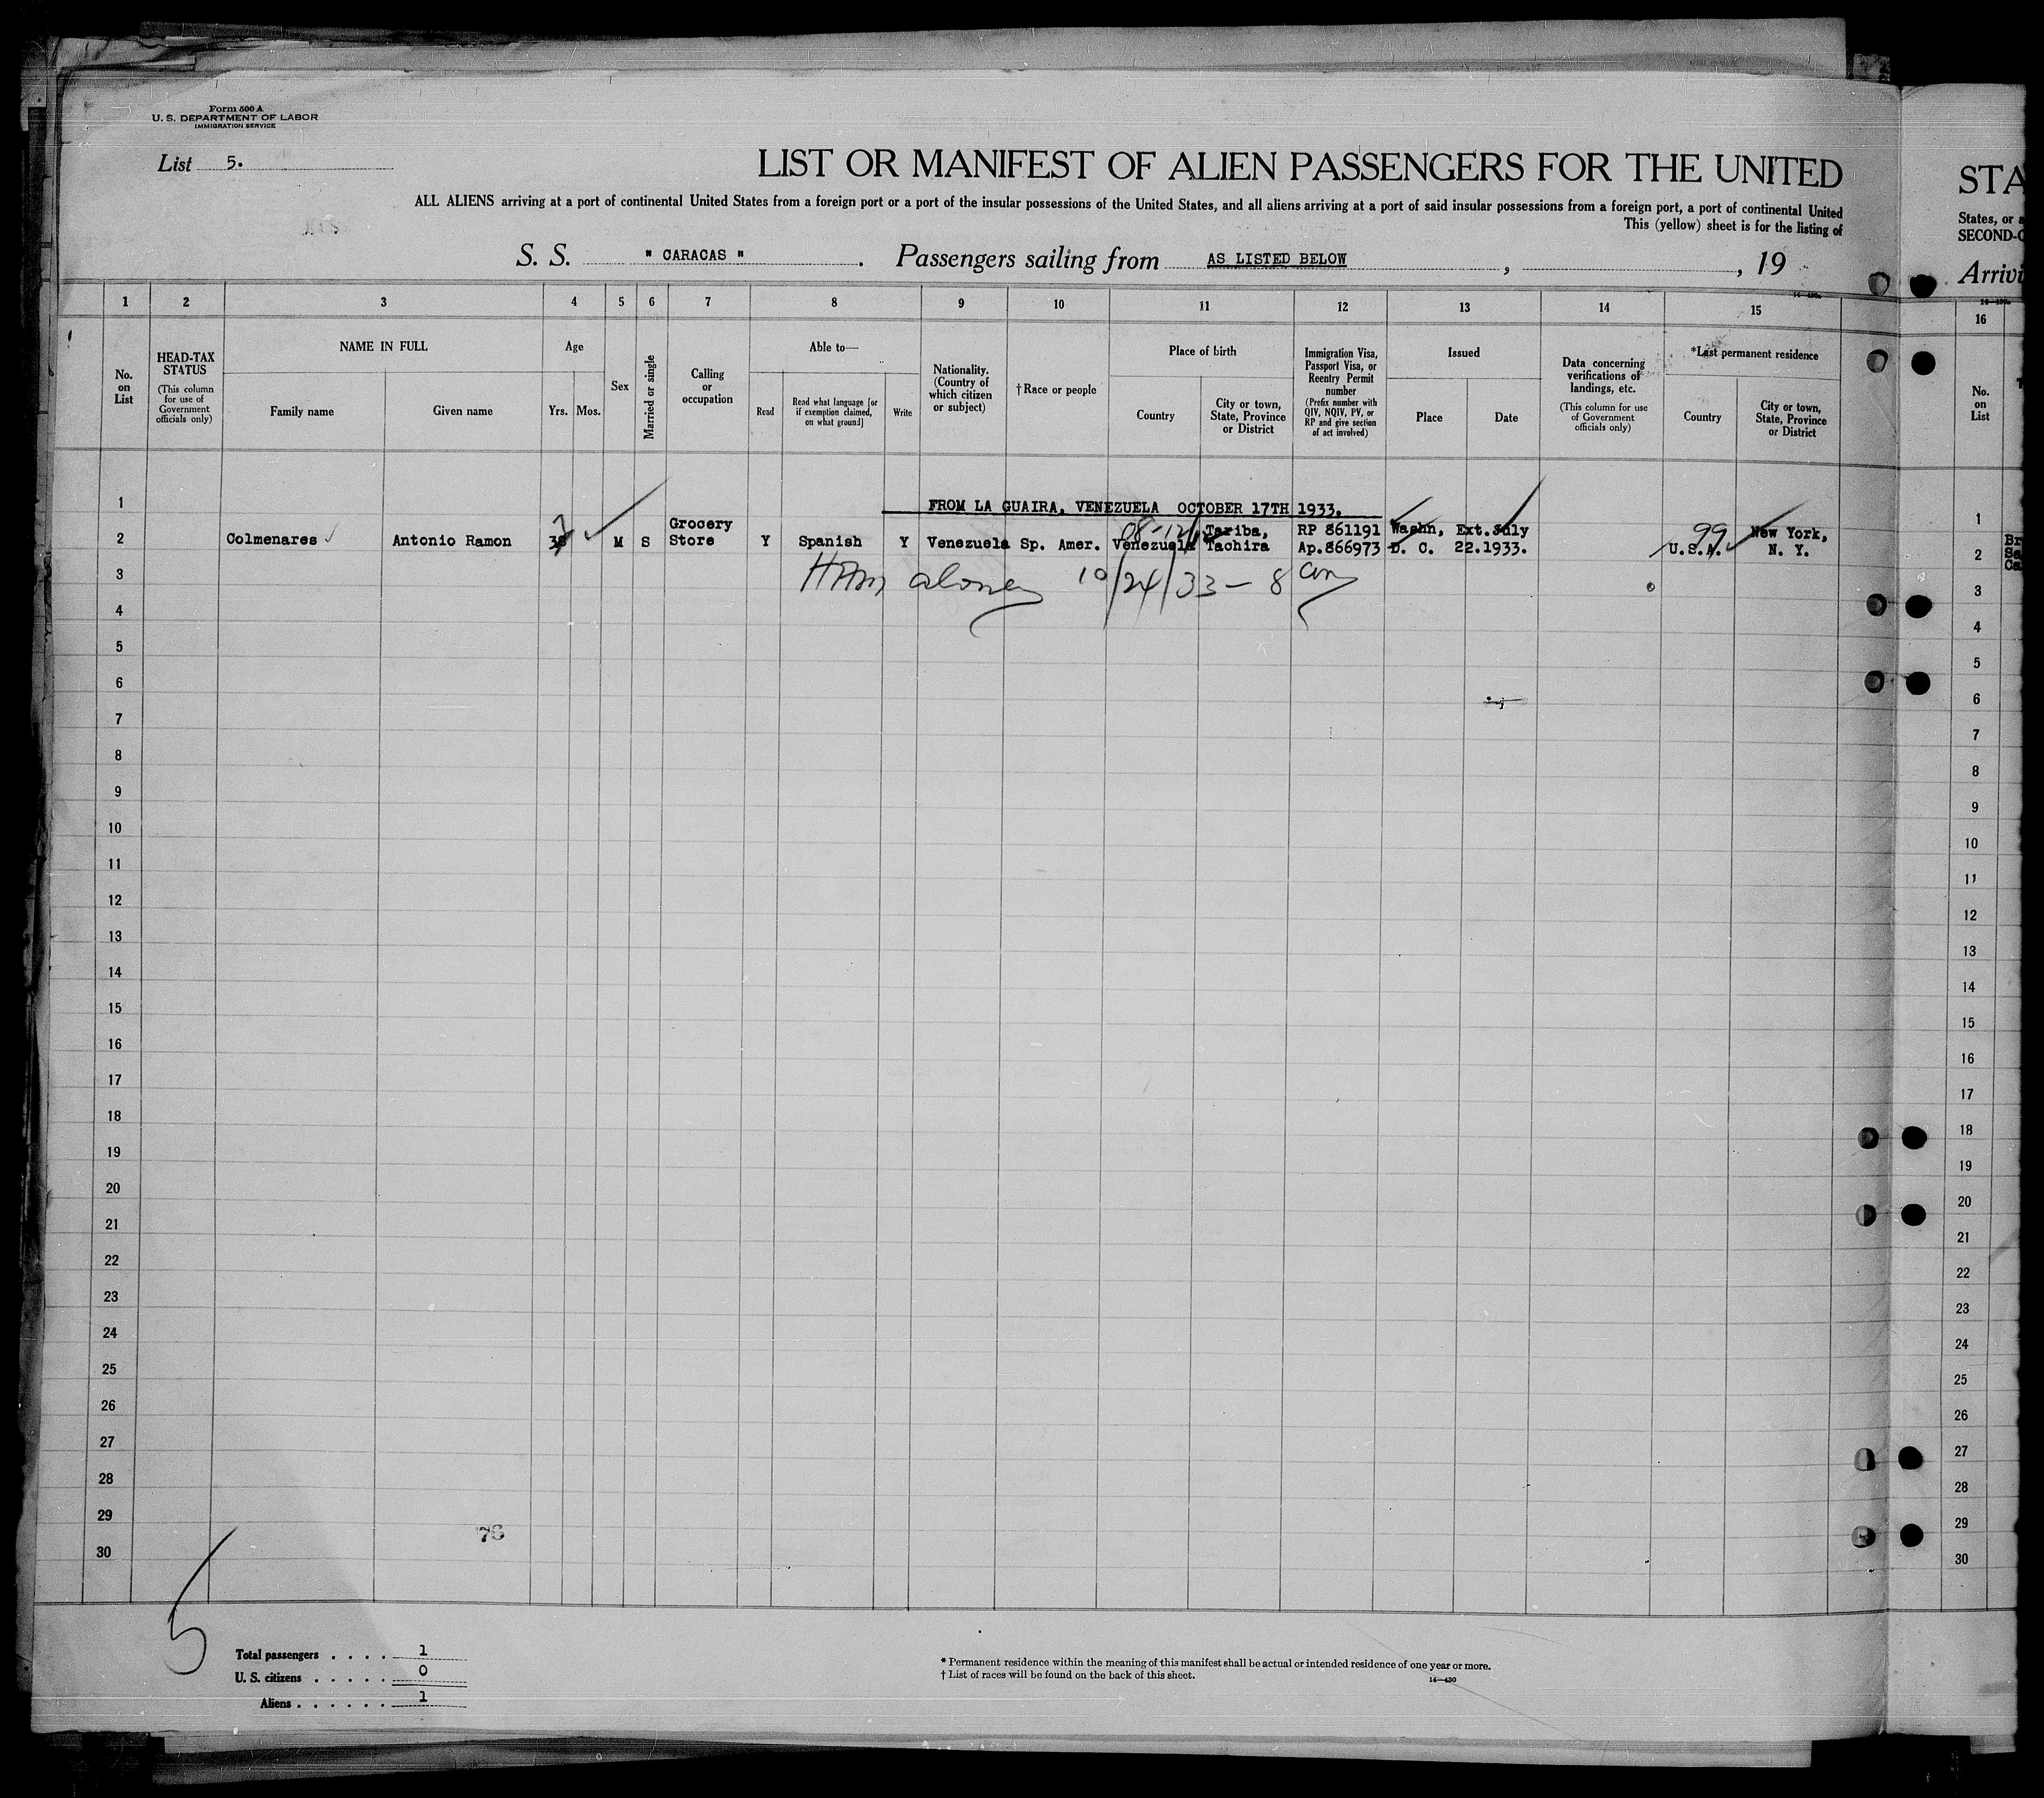 Form 500 A
U. S. DEPARTMENT OF LABOR
IMMIGRATION SERVICE
List 5.
LIST OR MANIFEST OF ALIEN PASSENGERS FOR THE UNITED
STA
ALL ALIENS arriving at a port of continental United States from a foreign port or a port of the insular possessions of the United States, and all aliens arriving at a port of said insular possessions from a foreign port, a port of continental United
States, or a
This (yellow) sheet is for the listing of
SECOND-C
S. S. " CARACAS ". Passengers sailing from AS LISTED BELOW, , 19
Arrivi
1 2 3 4 5 6 7 8 9 10 11 12 13 14 15
16
No. on List
HEAD-TAX STATUS
(This column for use of Government officials only)
NAME IN FULL
Family name
Given name
Age
Yrs. Mos.
Sex
Married or single
Calling or occupation
Able to—
Read
Read what language [or if exemption claimed, on what ground]
Write
Nationality. (Country of which citizen or subject)
†Race or people
Place of birth
Country
City or town, State, Province or District
Immigration Visa, Passport Visa, or Reentry Permit number
(Prefix number with QIV, NQIV, PV, or RP and give section of act involved)
Issued
Place
Date
Data concerning verifications of landings, etc.
(This column for use of Government officials only)
*Last permanent residence
Country
City or town, State, Province or District
No. on List
1 FROM LA GUAIRA, VENEZUELA OCTOBER 17TH 1933.
1
2 Colmenares Antonio Ramon M S Grocery Store Y Spanish Y Venezuela Sp. Amer. Venezuela Tariba, Tachira RP 861191 Ap.866973 Washn, D. C. Ext.July 22.1933. 99 U.S.A. New York, N. Y.
2 Br
Sa
Ca
3 10/24/33 - 8
3
4
4
5
5
6
6
7
7
8
8
9
9
10
10
11
11
12
12
13
13
14
14
15
15
16
16
17
17
18
18
19
19
20
20
21
21
22
22
23
23
24
24
25
25
26
26
27
27
28
28
29
29
30
30
5
Total passengers . . . . 1
U. S. citizens . . . . . 0
Aliens . . . . . . 1
* Permanent residence within the meaning of this manifest shall be actual or intended residence of one year or more.
† List of races will be found on the back of this sheet.
14—430